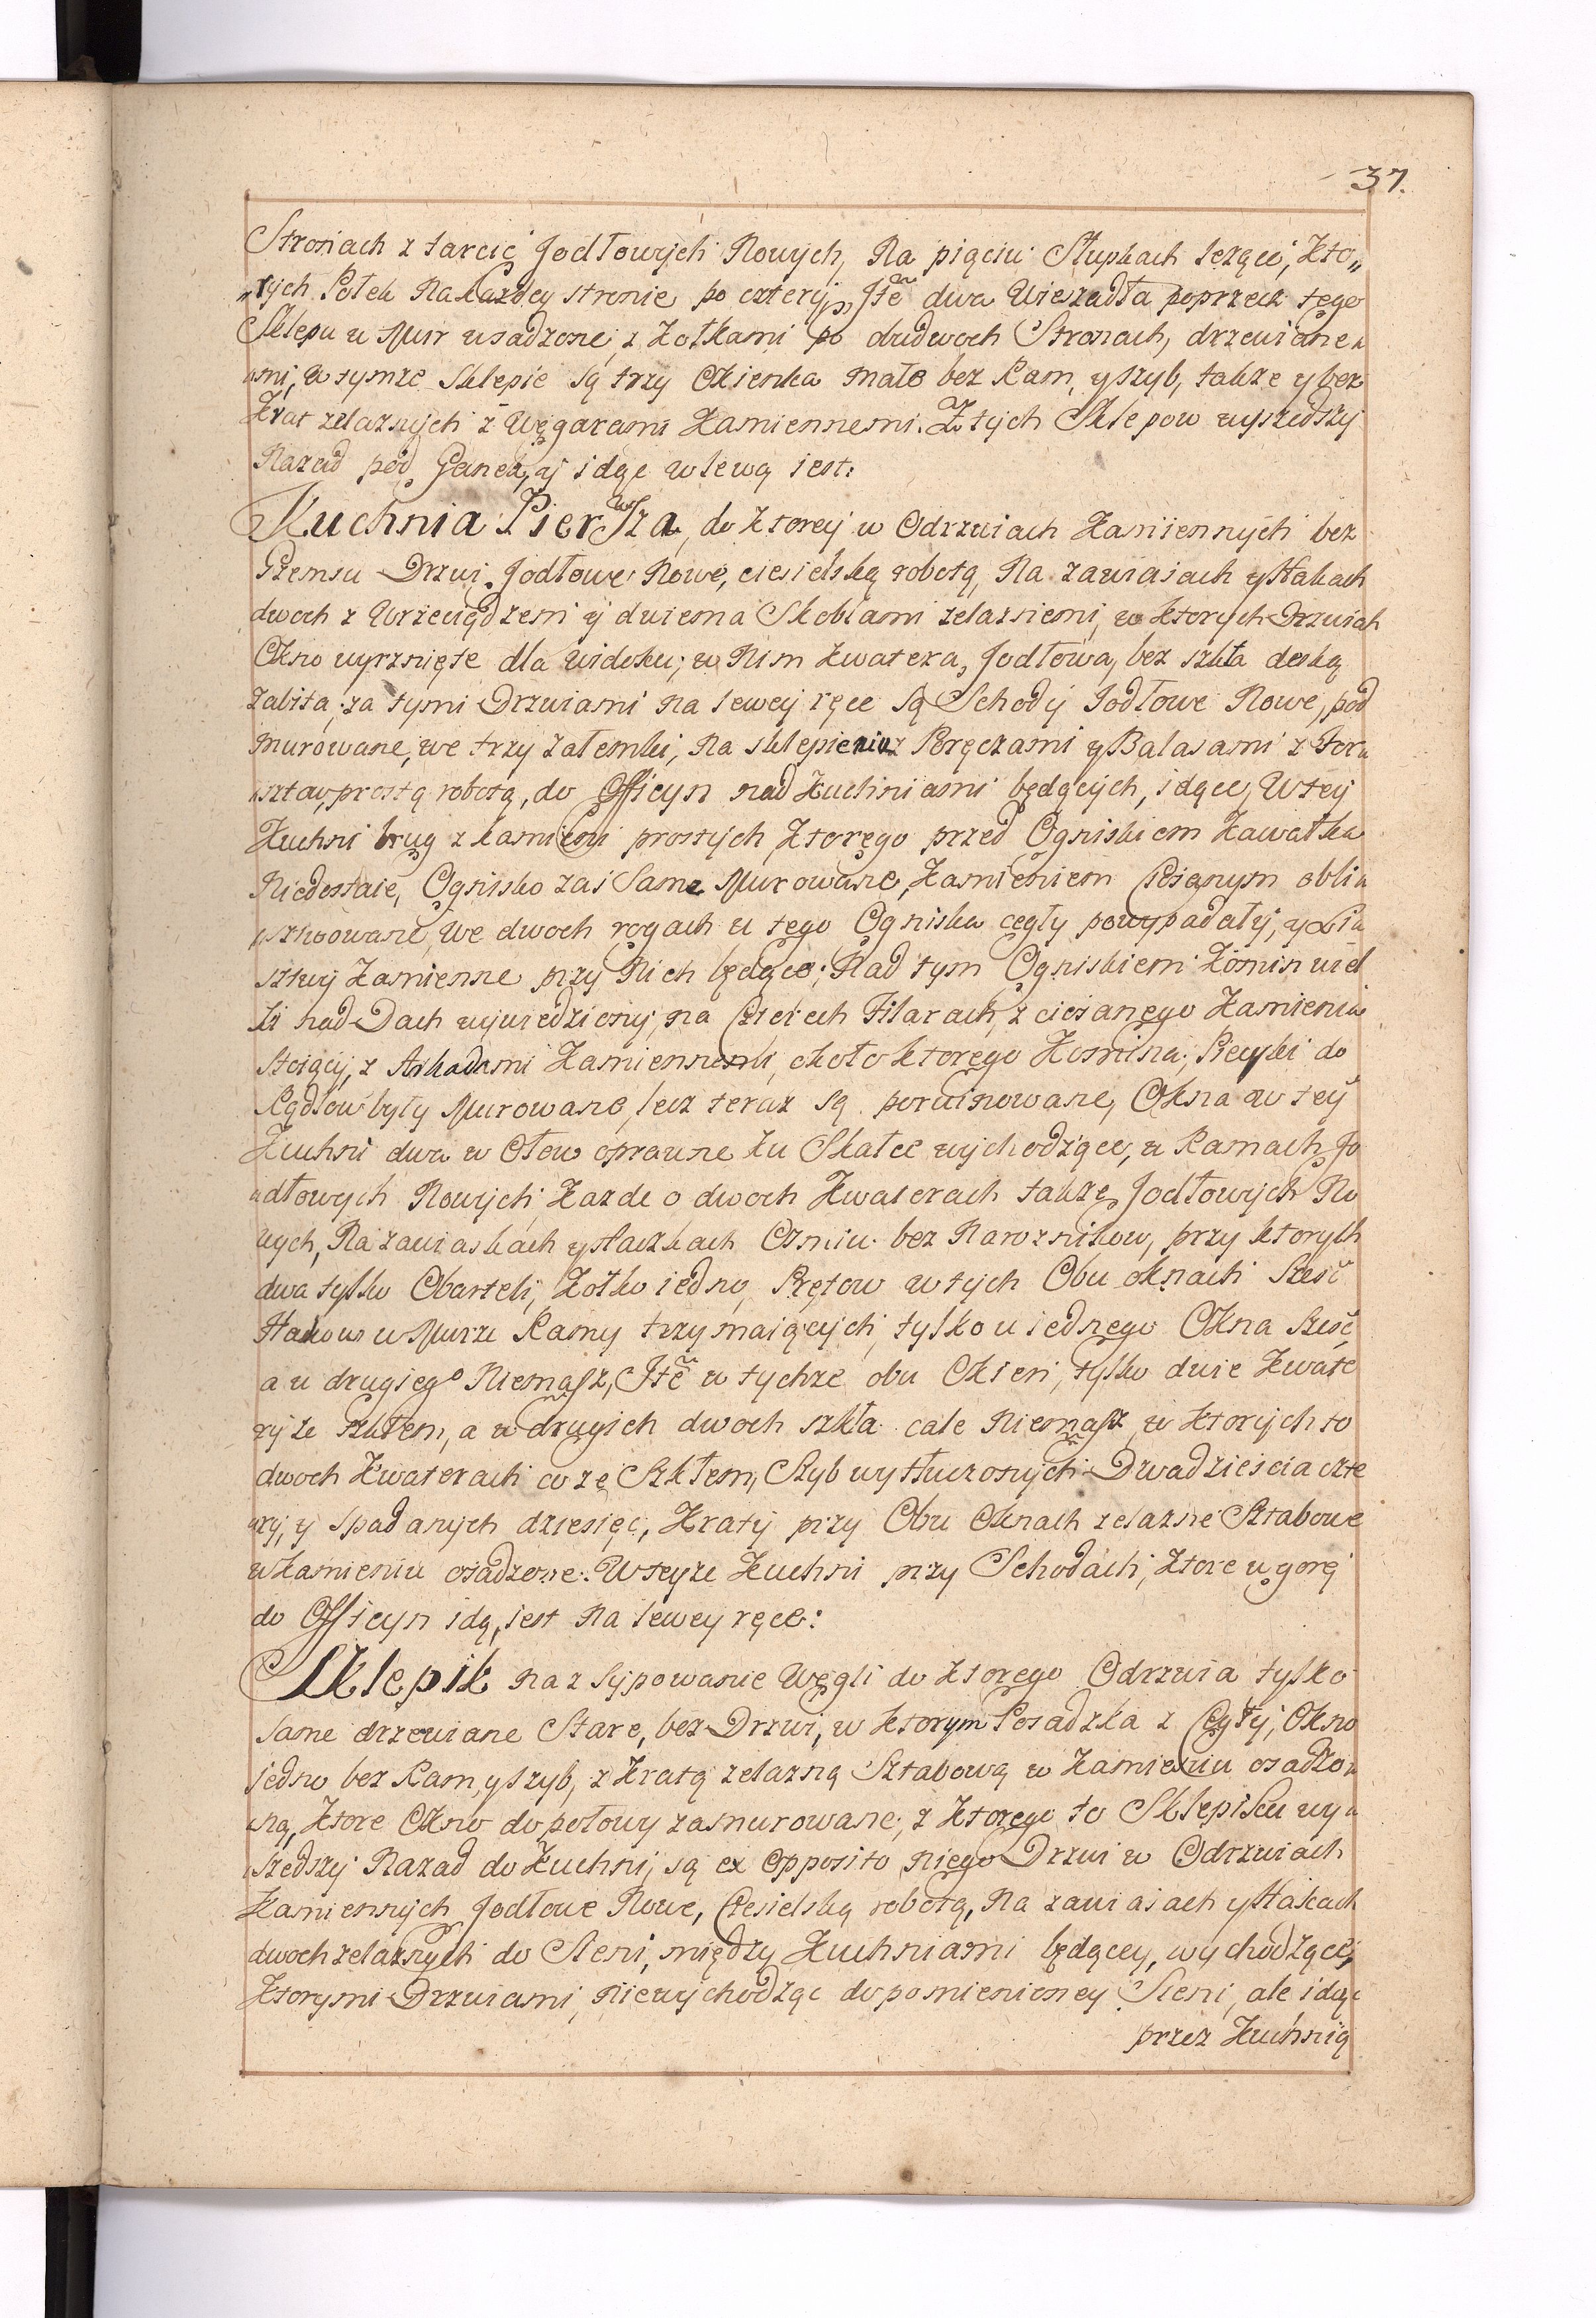 37.
Stronach z tarcic Jodłowych Nowych, Na pięciu Słupkach leżące, Kto„
„rych Połek Na każdey stronie po cztery, Itẽ dwa Wieszadła poprzeck tego
Sklepu w Mur wsadzone, z Kołkami po dudwoch Stronach, drzewiane„
„mi, w tymże Sklepie są trzy Okienka małe bez Ram, y szyb, także y bez
Krat żelaznych z Węgarami Kamiennemi. Z tych Sklepow wyszedszy
Nazad pod Ganek, y idąc w lewą iest:
Kuchnia Pierwsza, do Ktorey w Odrzwiach Kamiennych bez
Gzemsu Drzwi Jodłowe Nowe, ciesielską robotą, Na zawiasach y Hakach
dwoch z Wrzeciądzem y dwiema Skoblami żelaznemi, w Ktorych Drzwiach
Okno wyrznięte dla widoku, w Nim Kwatera, Jodłowa, bez szkła deską
zabita, za tymi Drzwiami na lewey ręce są Schody Jodłowe Nowe, pod
murowane, we trzy załemki, Na sklepieniu z Poręczami y Balasami z For„
„sztow, prostą robotą, do Officyn nad Kuchniami będących, idące, W tey
Kuchni brug z kamieni prostych, Ktorego przed Ogniskiem Kawałka
Niedostaie, Ognisko zaś Same Murowane, Kamieniem Ciosanym obli„
„cowane, we dwoch rogach u tego Ogniska cegły powypadały, y Li„
sztwy Kamienne przy Nich będące; Nad tym Ogniskiem Komin wiel
ki nad Dach wywiedziony, na Czterech Filarach, z ciosanego Kamienia
stoiący, z Arkadami Kamiennemi, około ktorego Komina, Piecyki do
Rądlow były Murowane, lecz teraz są poruinowane, Okna w tey
Kuchni dwa w Ołow oprawne ku Skałce wychodzące, w Ramach Jo
„dłowych Nowych, Każde o dwoch Kwaterach także Jodłowych No
wych, Na zawiaskach y haczkach Ośmiu bez Narożnikow, przy ktorych
dwa tylko Obartele, Kołko iedno, Prętow w tych Obu oknach Sześć
Hakow w Murze Ramy trzymaiących, tylko u iednego Okna Sześć,
a u drugiego Niemasz, Itẽ w tychże obu Okien, tylko dwie Kwate
ry ze szkłem, a w drugich dwoch szkła cale Niemasz, w Ktorych to
dwoch Kwaterach co ze Szkłem, Szyb wytłuczonych Dwadzieścia czte
„ry, y spadanych dziesięć, Kraty przy Obu Oknach żelazne Sztabowe
w Kamieniu osadzone. W teyże Kuchni przy Schodach, Ktore w gorę
do Officyn idą, iest Na lewey ręce:
Sklepik na zsypowanie Węgli do Ktorego Odrzwia tylko
same drzewiane Stare, bez Drzwi, w Ktorym Posadzka z Cegły, Okno
jedno bez Ram, y szyb, z Kratą żelazną Sztabową w Kamieniu osadzo„
„ną, Ktore Okno do połowy zamurowane, z Ktorego to Sklepiku wy„
„szedszy Nazad do Kuchni, są ex opposito niego Drzwi w Odrzwiach
Kamiennych Jodłowe Nowe, Ciesielską robotą, Na zawiasach y Hakach
dwoch żelaznych do Sieni, między Kuchniami będącey, wychodzące,
Ktorymi Drzwiami, Niewychodząc do pomienioney Sieni, ale idąc
przez Kuchnią